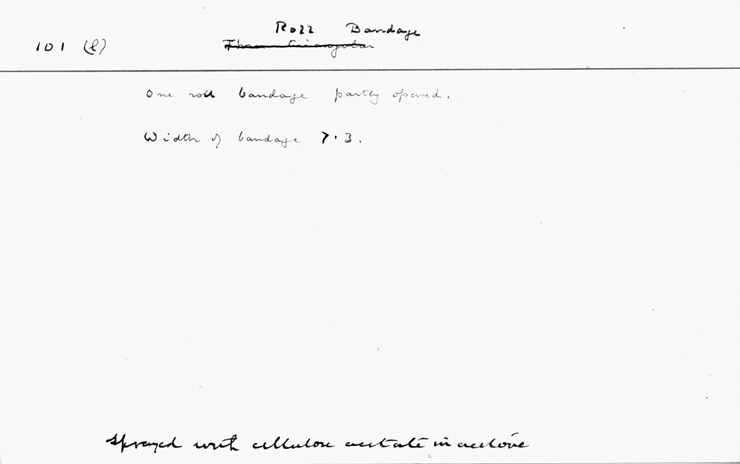 Roll Bandage
101 (l)
One roll bandage partly opened.
Width of bandage 7.3.
Sprayed with cellulose acetate in acetone